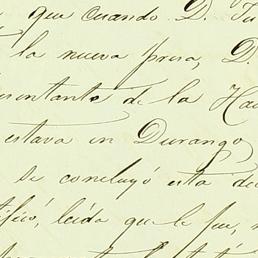 que cuando D. Ju
la nueva presa, D.
esentante de la Hac
estava en Durango
se concluyó esta de
tificó, leida que le fue,